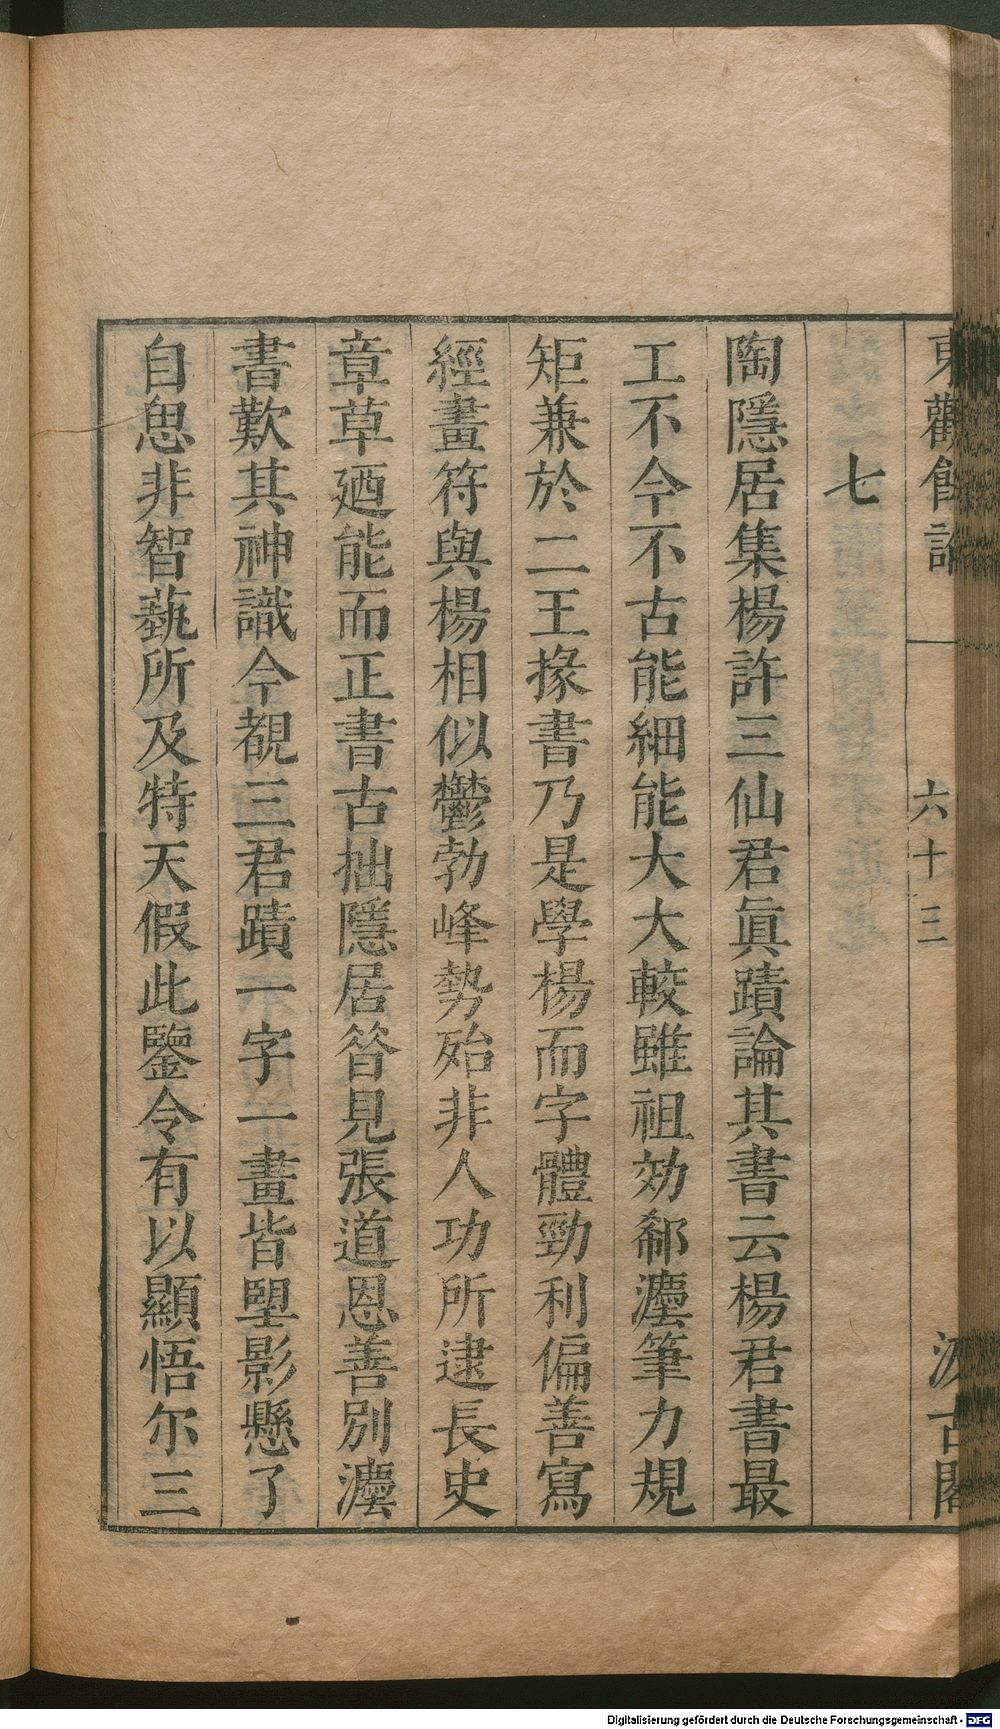 東觀餘論 六十三 汲古閣
七
陶隱居集楊許三仙君眞蹟論其書云楊君書最
工不今不古能細能大大較雖祖効郗灋筆力規
矩兼於二王掾書乃是學楊而字體勁利偏善寫
經畫符與楊相似鬱勃峰勢殆非人功所逮長史
章草廼能而正書古拙隱居昝見張道恩善別灋
書歎其神識今覩三君蹟一字一畫皆朢影懸了
自思非智蓺所及特天假此鑒令有以顯悟尔三
Digitalisierung gefördert durch die Deutsche Forschungsgemeinschaft - DFG